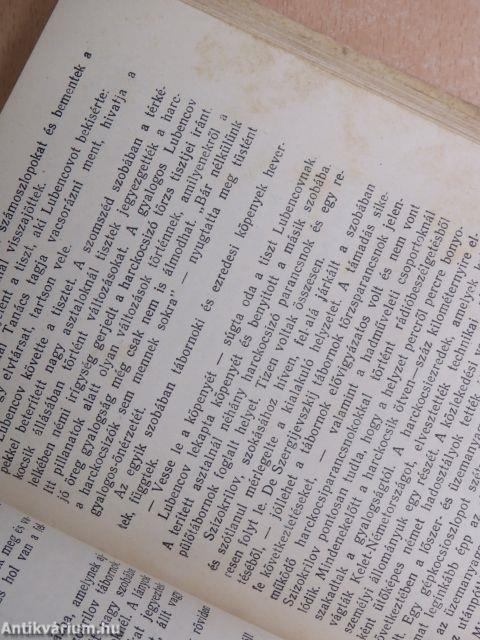 számoszlopokat és bementek a
visszajöttek.
a tiszt, aki Lubencovot bekísérte:
Tanács tagja vacsorázni ment, hívatja a
elvtársat, tartson vele.
Lubencov követte a tisztet. A szomszéd szobában a térké-
pekkel beterített nagy asztaloknál tisztek jegyezgették a harc-
kocsik állásában történt változásokat. A gyalogos Lubencov
lelkében némi irigység gerjedt a harckocsizó törzs tisztjei iránt.
Itt pillanatok alatt olyan változások történnek, amilyenekről a
jó öreg gyalogság még csak nem is álmodhat. „Bár nélkülünk
a harckocsizók sem mennek sokra” — nyugtatta meg tüstént
gyalogos-önérzetét.
Az egyik szobában tábornoki és ezredesi köpenyek hever-
tek, függtek
— Vesse le a köpenyét — súgta oda a tiszt Lubencovnak.
Lubencov lekapta köpenyét és benyitott a másik szobába.
A terített asztalnál néhány harckocsizó parancsnok és egy re-
pülőtábornok foglalt helyet. Tizen voltak összesen.
Szizokrilov, szokásához híven, fel-alá járkált a szobában
és szótlanul mérlegelte a kialakuló helyzetet. A támadás sike-
resen folyt le. De Szergijevszkij tábornok törzsparancsnok jelen-
téséből, — jóllehet a tábornok elővigyázatos volt és nem vont
le következtetéseket, — valamint a hadműveleti csoportoknál
működő harckocsiparancsnokokkal történt rádióbeszélgetésből
Szizokrilov pontosan tudta, hogy a helyzet percről percre bonyo-
lódik. Mindenekelőtt a harckocsik ötven—száz kilométernyire el-
szakadtak a gyalogságtól. A harckocsiezredek, amelyek
vágták Kelet-Németországot, elvesztették technikai
személyi állományuk egy részét. A közlekedési
közt ütőképes német hadosztályok
következtében a lőszer- és üzemanya-
Egy gépkocsioszlopot
leginkább épp az
az üzemanya-
A meg és
hol van a
amelynek
tábornok
egy szobába
A lányok
jegyezték
áll vagy
rövidet
Antikvárium.hu